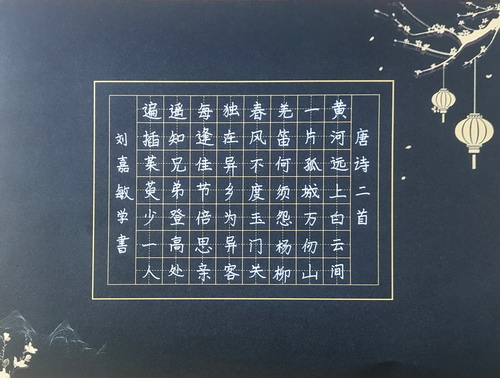 唐诗二首
黄河远上白云间
一片孤城万仞山
羌笛何须怨杨柳
春风不度玉门关
独在异乡为异客
每逢佳节倍思亲
遥知兄弟登高处
遍插茱萸少一人
刘嘉敏学书